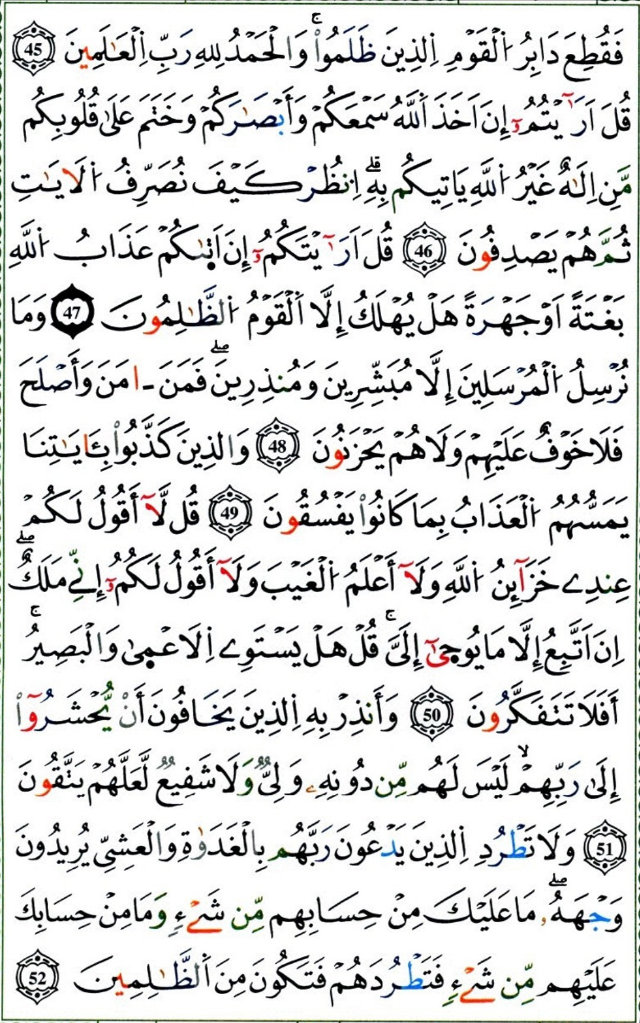 فَقُطِعَ دَابِرُ اُ۬لْقَوْمِ اِ۬لذِينَ ظَلَمُواْۖ وَالْحَمْدُ لِلهِ رَبِّ اِ۬لْعَٰلَمِينَ 45
قُلَ اَرَٰٓيْتُمُۥٓ إِنَ اَخَذَ اَ۬للَّهُ سَمْعَكُمْ وَأَبْصَٰرَكُمْ وَخَتَمَ عَلَىٰ قُلُوبِكُم
مَّنِ اِلَٰهٌ غَيْرُ اُ۬للَّهِ يَاتِيكُم بِهِۖ اِ۟نظُرْ كَيْفَ نُصَرِّفُ اُ۬لَايَٰتِ
ثُمَّ هُمْ يَصْدِفُونَ 46 قُلَ اَرَٰٓيْتَكُمُۥٓ إِنَ اَت۪يٰكُمْ عَذَابُ اُ۬للَّهِ
بَغْتَةً اَوْ جَهْرَةً هَلْ يُهْلَكُ إِلَّا اَ۬لْقَوْمُ اُ۬لظَّٰلِمُونَ 47 وَمَا
نُرْسِلُ اُ۬لْمُرْسَلِينَ إِلَّا مُبَشِّرِينَ وَمُنذِرِينَۖ فَمَنَ ـ امَنَ وَأَصْلَحَ
فَلَا خَوْفٌ عَلَيْهِمْ وَلَا هُمْ يَحْزَنُونَ 48 وَالذِينَ كَذَّبُواْ بِـَٔايَٰتِنَا
يَمَسُّهُمُ اُ۬لْعَذَابُ بِمَا كَانُواْ يَفْسُقُونَ 49 قُل لَّآ أَقُولُ لَكُمْ
عِندِے خَزَآئِنُ اُ۬للَّهِ وَلَآ أَعْلَمُ اُ۬لْغَيْبَ وَلَآ أَقُولُ لَكُمُۥٓ إِنِّے مَلَكٌۖ
اِنَ اَتَّبِعُ إِلَّا مَا يُوح۪يٰٓ إِلَيَّۖ قُلْ هَلْ يَسْتَوِے اِ۬لَاعْم۪يٰ وَالْبَصِيرُۖ
أَفَلَا تَتَفَكَّرُونَ 50 وَأَنذِرْ بِهِ اِ۬لذِينَ يَخَافُونَ أَنْ يُّحْشَرُوٓاْ
إِلَىٰ رَبِّهِمْ لَيْسَ لَهُم مِّن دُونِهِۦ وَلِيٌّ وَلَا شَفِيعٌ لَّعَلَّهُمْ يَتَّقُونَ
51 وَلَا تَطْرُدِ اِ۬لذِينَ يَدْعُونَ رَبَّهُم بِالْغَدَوٰةِ وَالْعَشِيِّ يُرِيدُونَ
وَجْهَهُۥۖ مَا عَلَيْكَ مِنْ حِسَابِهِم مِّن شَےْءٖ وَمَا مِنْ حِسَابِكَ
عَلَيْهِم مِّن شَےْءٖ فَتَطْرُدَهُمْ فَتَكُونَ مِنَ اَ۬لظَّٰلِمِينَ 52